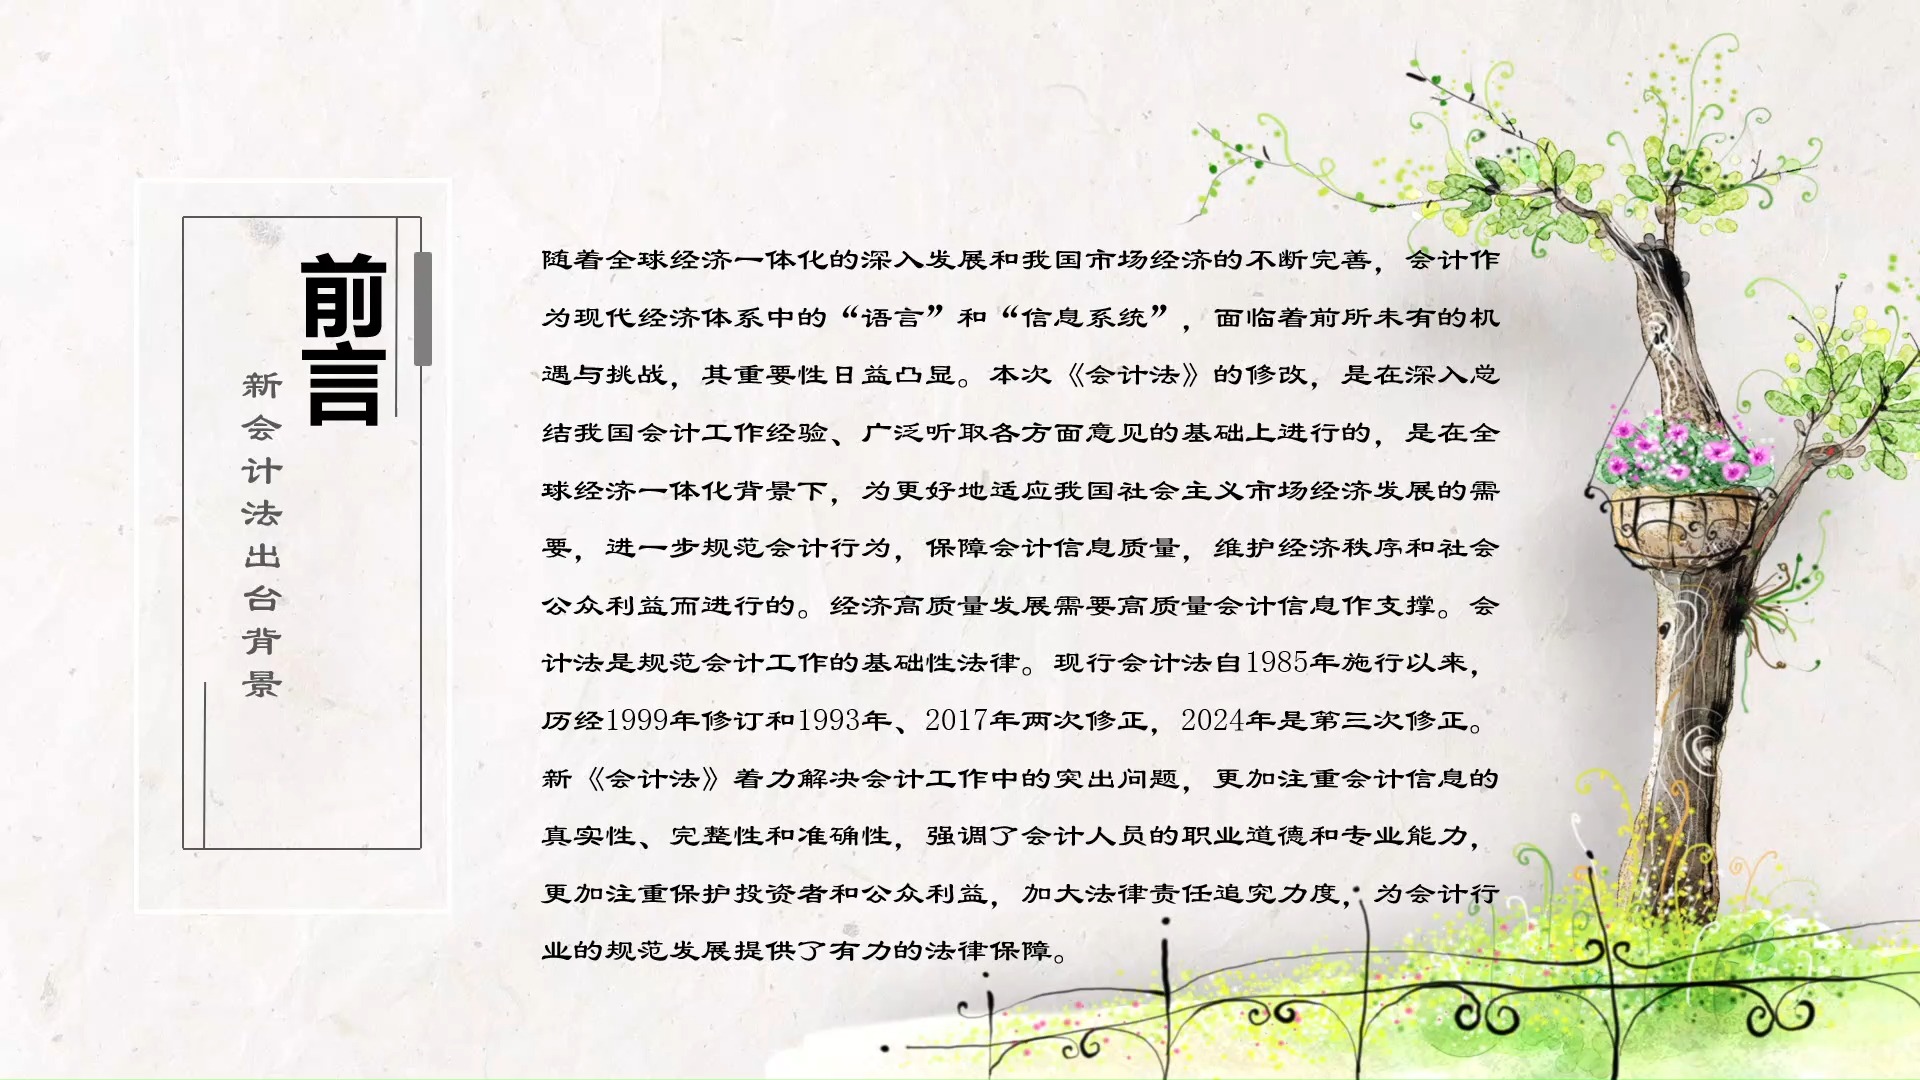 前言
新会计法出台背景
随着全球经济一体化的深入发展和我国市场经济的不断完善，会计作
为现代经济体系中的“语言”和“信息系统”，面临着前所未有的机
遇与挑战，其重要性日益凸显。本次《会计法》的修改，是在深入总
结我国会计工作经验、广泛听取各方面意见的基础上进行的，是在全
球经济一体化背景下，为更好地适应我国社会主义市场经济发展的需
要，进一步规范会计行为，保障会计信息质量，维护经济秩序和社会
公众利益而进行的。经济高质量发展需要高质量会计信息作支撑。会
计法是规范会计工作的基础性法律。现行会计法自1985年施行以来，
历经1999年修订和1993年、2017年两次修正，2024年是第三次修正。
新《会计法》着力解决会计工作中的突出问题，更加注重会计信息的
真实性、完整性和准确性，强调了会计人员的职业道德和专业能力，
更加注重保护投资者和公众利益，加大法律责任追究力度，为会计行
业的规范发展提供了有力的法律保障。